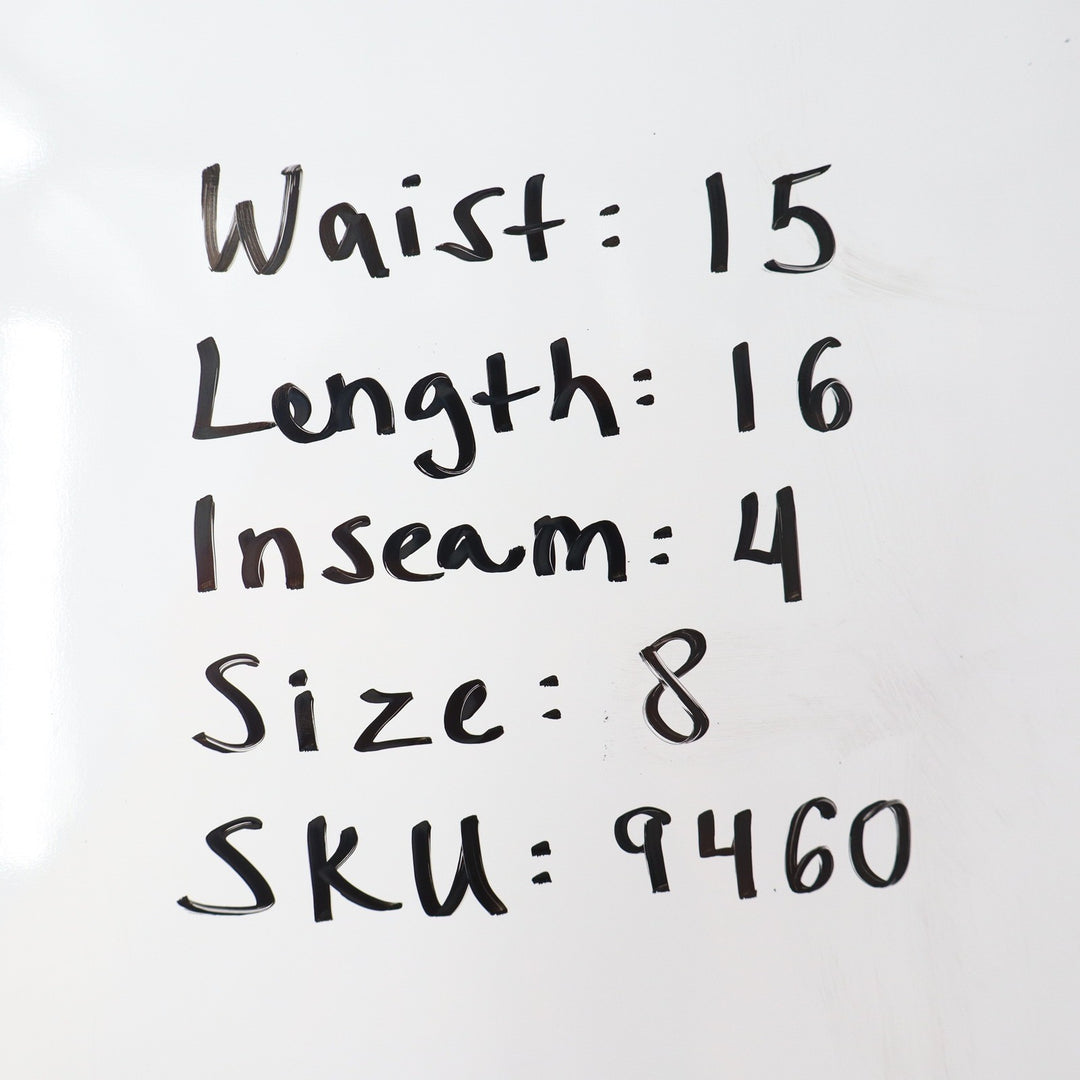 Waist: 15
Length: 16
Inseam: 4
Size: 8
SKU: 9460